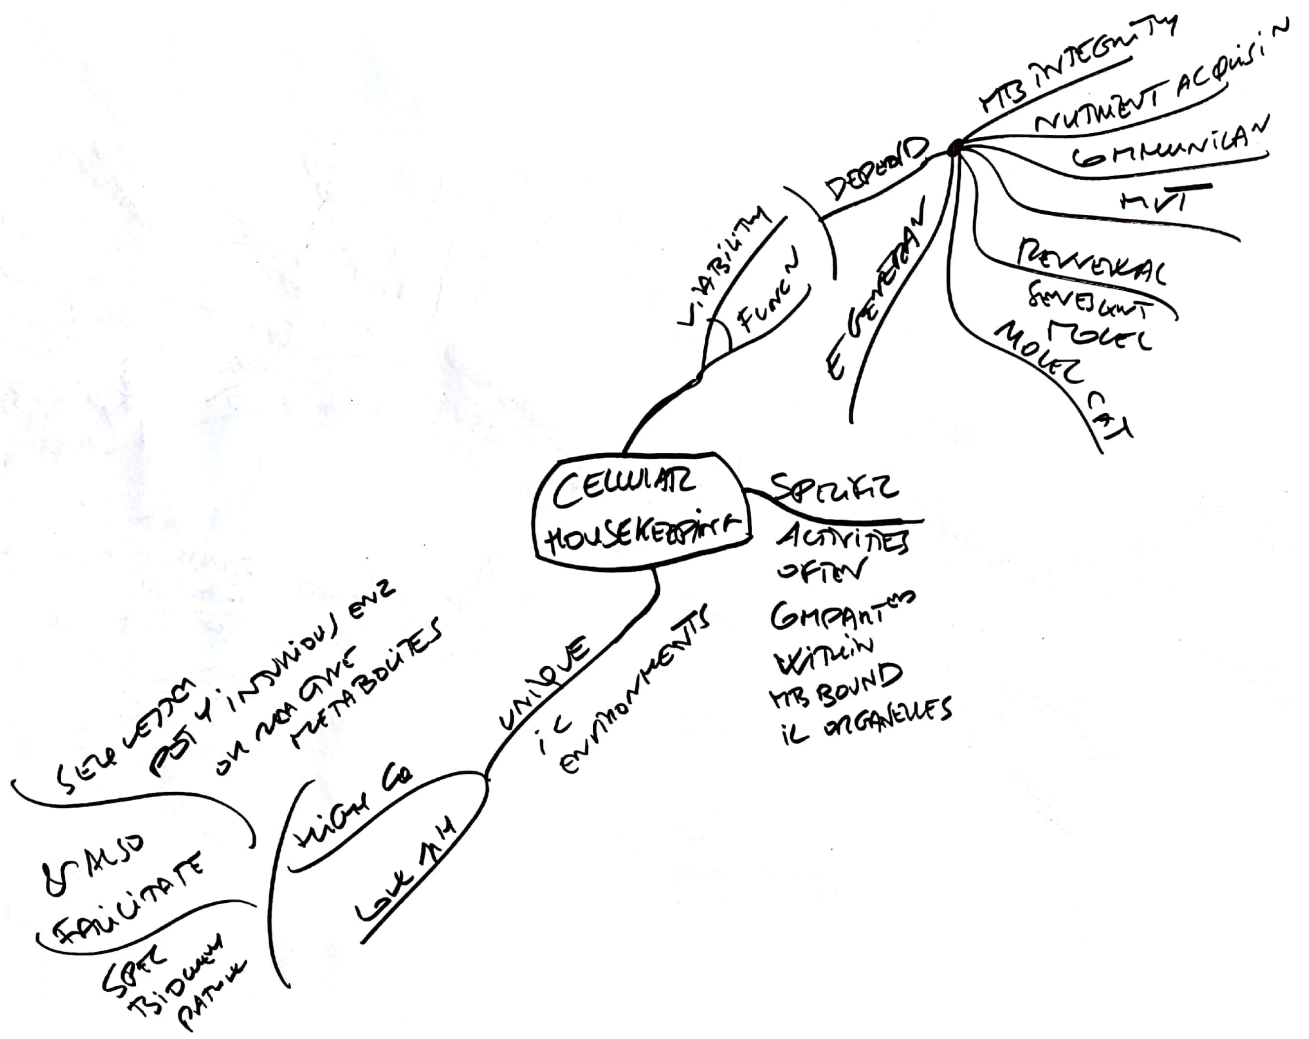 CELLULAR
HOUSEKEEPING
VIABILITY
FUNCN
DEPEND
MB INTEGRITY
NUTRIENT ACQUISIN
COMMUNICAN
MVT
RENNEWAL
SENESCENT
MOLEC
MOLEC CAT
E GENERAN
SPECIFIC
ACTIVITIES
OFTEN
COMPARTED
WITHIN
MB BOUND
IC ORGANELLES
UNIQUE
IC
ENVIRONMENTS
HIGH
LOW PH
POT Y INJURIOUS ENZ
OR REACTIVE
METABOLITES
& ALSO
FACILITATE
SPEC
BIOCHEM